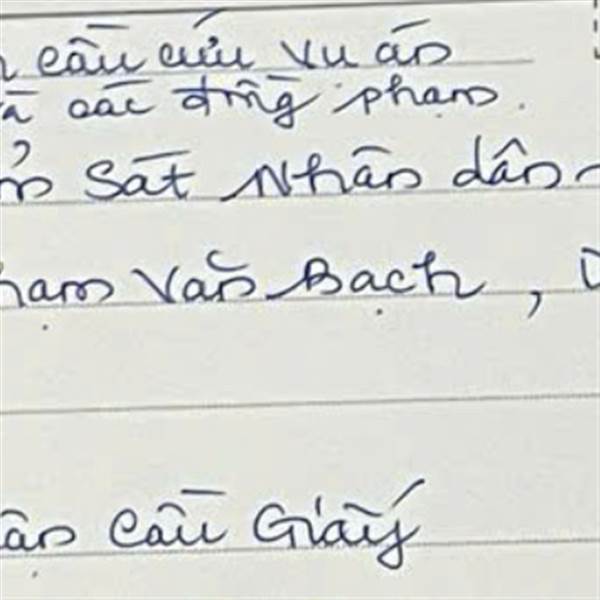 cầu cứu vụ án
và các đồng phạm.
Sát Nhân dân
Phạm Văn Bạch,
Cầu Giấy